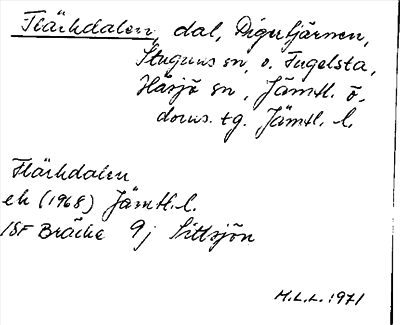 Flärkdalen, dal, Digertjärnen,
Stuguns sn, o. Fugelsta,
Hässjö sn, Jämtl. ö.
doms. tg. Jämtl. l.
Flärkdalen
ek (1968) Jämtl. l.
ISF Bräcke 9j Sittsjön
M.L.L. 1971